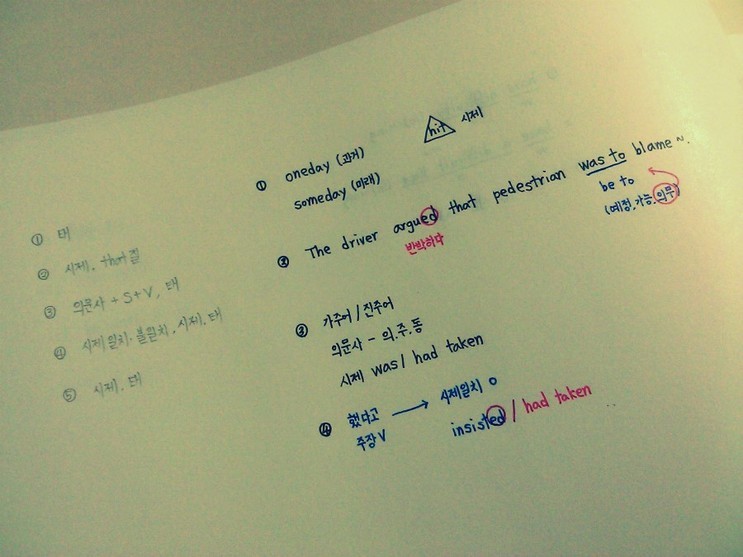 ① 태
② 시제, that절
③ 의문사 + S + V, 태
④ 시제일치·불일치, 시제, 태
⑤ 시제, 태
① oneday (과거)
someday (미래)
hit 시제
② The driver argued that pedestrian was to blame ~.
반박하다
be to
(예정, 가능, 의무)
③ 가주어 / 진주어
의문사 - 의.주.동
시제 was / had taken
④ 했다고 → 시제일치 o
주장 V insisted / had taken